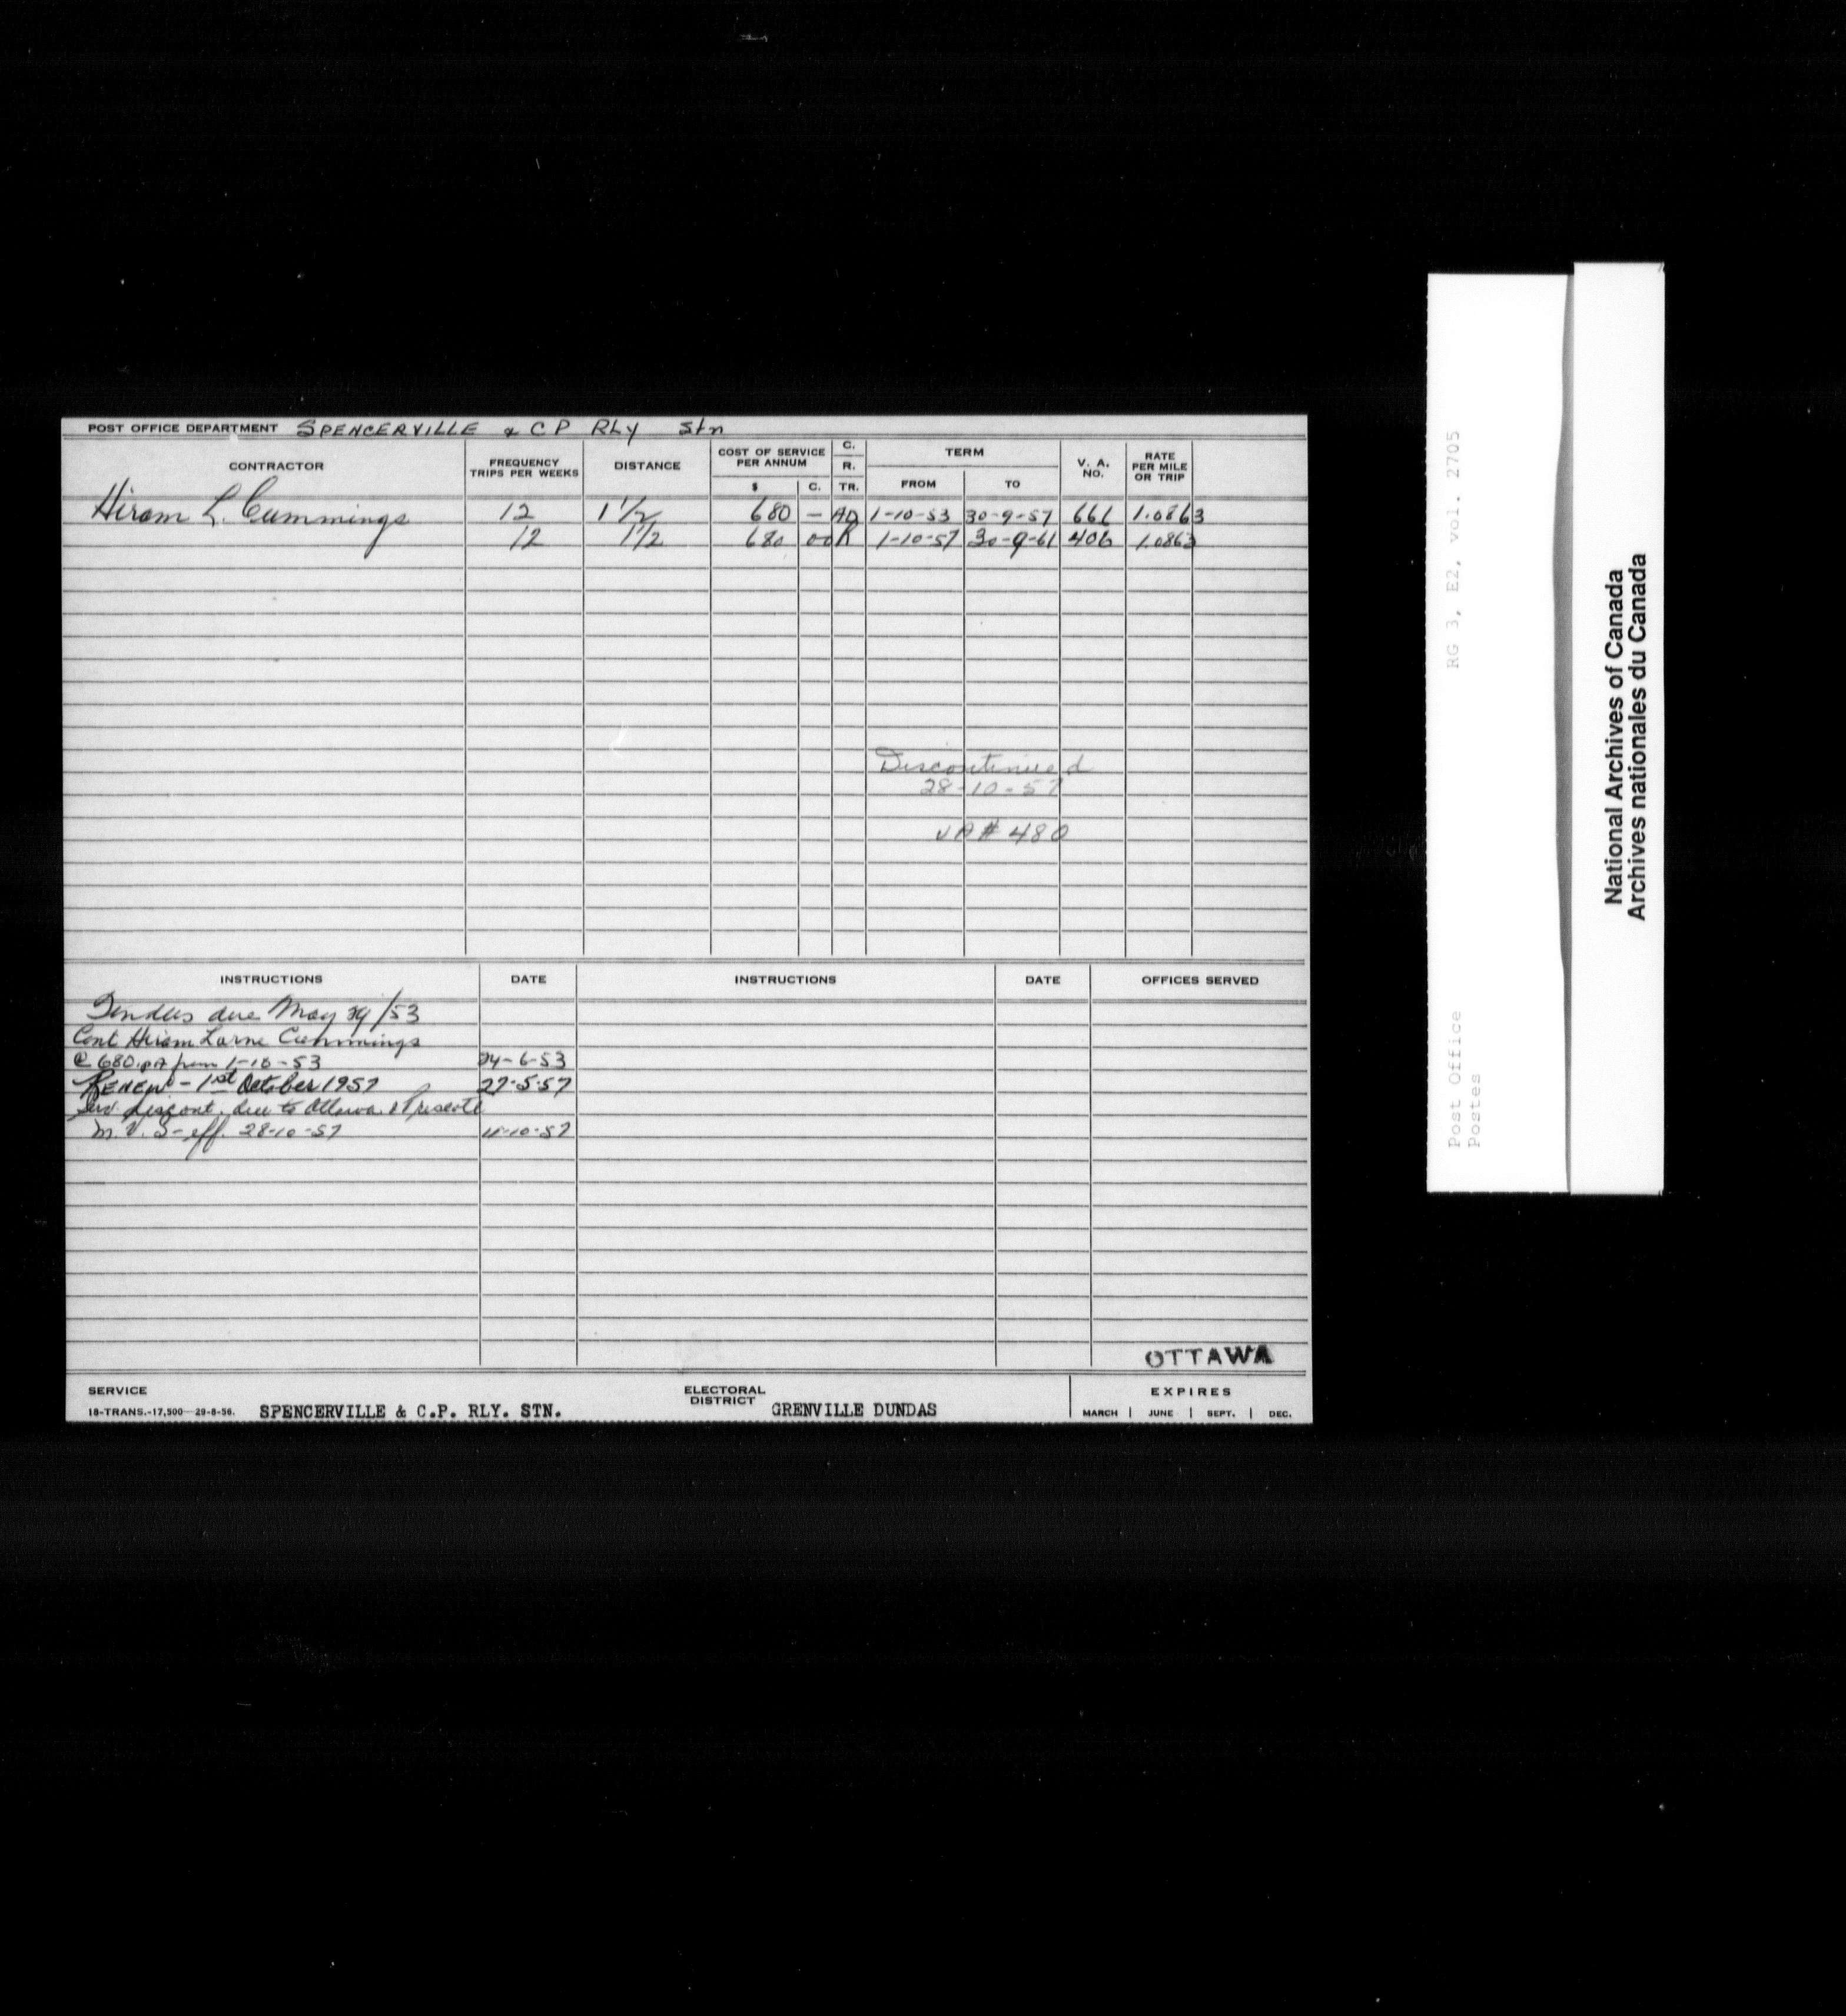 POST OFFICE DEPARTMENT SPENCERVILLE & CP RLY Stn
CONTRACTOR FREQUENCY TRIPS PER WEEKS DISTANCE COST OF SERVICE PER ANNUM $ C. C. R. TR. TERM FROM TO V. A. NO. RATE PER MILE OR TRIP
Hiram L. Cummings 12 1 1/2 680 — AD 1-10-53 30-9-57 661 1.0863
12 1 1/2 680 00 R 1-10-57 30-9-61 406 1.0863
Discontinued
28-10-57
VA # 480
INSTRUCTIONS DATE INSTRUCTIONS DATE OFFICES SERVED
Tenders due May 29/53
Cont Hiram Lorne Cummings
@ 680. pa from 1-10-53 24-6-53
RENEW - 1st October 1957 27-5-57
Serv. discont. due to Ottawa & Prescott
M.V.S - eff. 28-10-57 11-10-57
OTTAWA
SERVICE ELECTORAL DISTRICT EXPIRES
18-TRANS.-17,500—29-8-56. SPENCERVILLE & C.P. RLY. STN. GRENVILLE DUNDAS MARCH | JUNE | SEPT. | DEC.
RG 3, E2, vol. 2705
Post Office
Postes
National Archives of Canada
Archives nationales du Canada